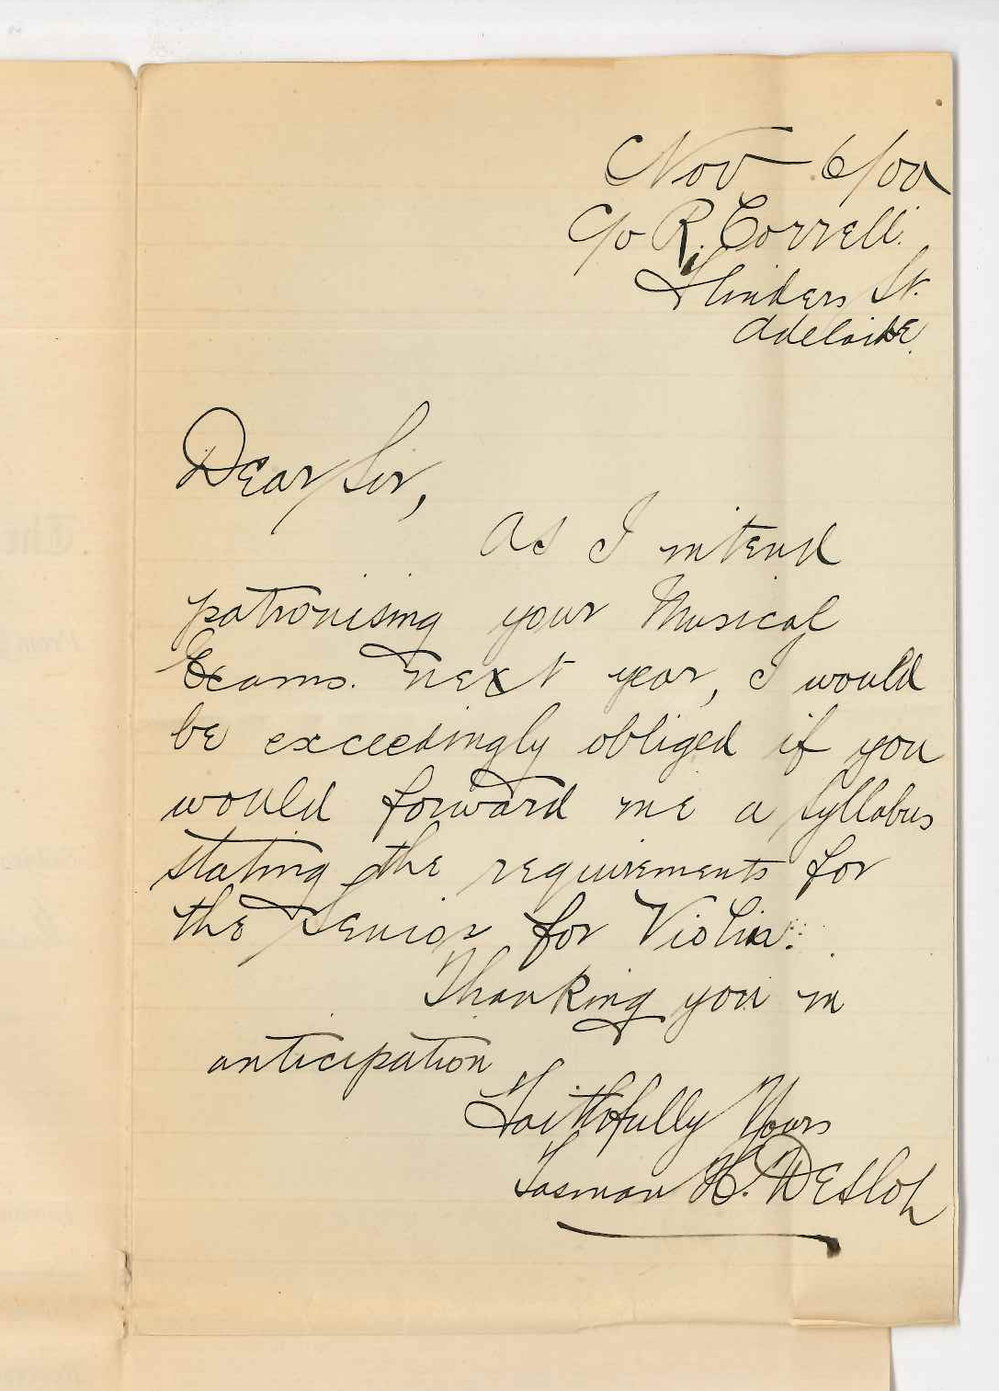 Nov 6/00
c/o R. Correll.
Flinders St.
Adelaide.
Dear Sir,
As I intend
patronising your Musical
Exams. next year, I would
be exceedingly obliged if you
would forward me a syllabus
stating the requirements for
the Senior for Violin.
Thanking you in
anticipation
Faithfully Yours
Tasman H.